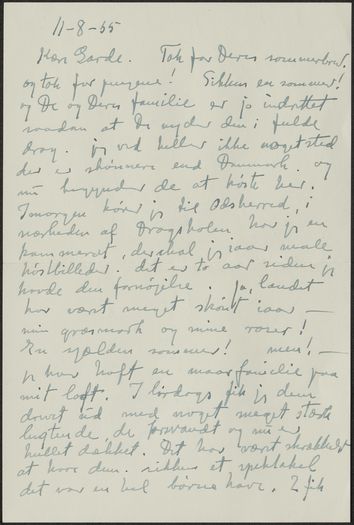 11-8-55
Kære Garde. Tak for Deres sommerbrev.
og tak for pengene! Sikken en sommer!
og De og Deres familie er jo indrettet
saadan at De nyder den i fulde
drag. jeg ved heller ikke noget sted
der er skønnere end Danmark. og
nu begynder de at høste her.
Imorgen kører jeg til Odsherred, i
nærheden af Dragsholm har jeg en
kammerat, der skal jeg iaar male
høstbilleder. det er to aar siden jeg
havde den fornøjelse. Ja, landet
har været meget skønt iaar —
min græsmark og mine roser!
En sjælden sommer! men! —
jeg har haft en maarfamilie paa
mit loft. I lørdags fik jeg dem
drevet ud med noget meget stærkt
lugtende de forsvandt og nu er
hullet dækket. Det har været skrækkeligt
at høre dem. sikken et spektakel
det var en hel børnehave. 2 fik